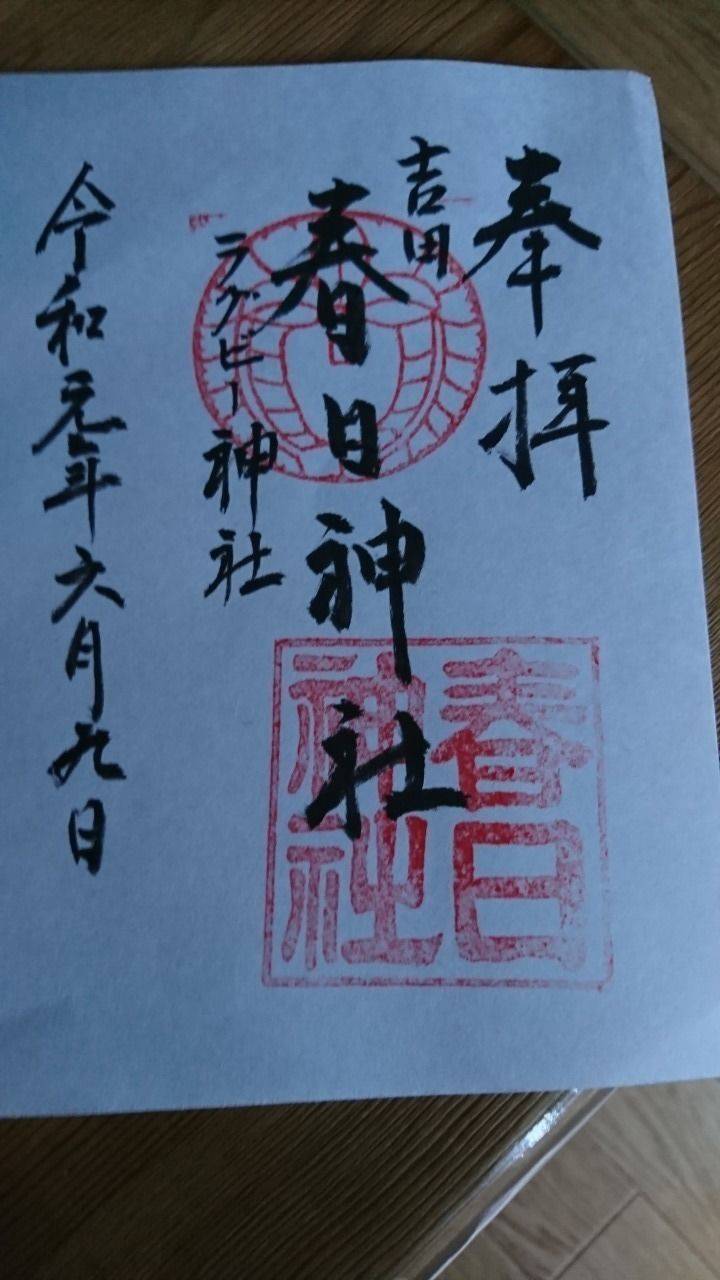 奉拝
吉田
春日神社
ラグビー神社
令和元年六月九日
春日
神社